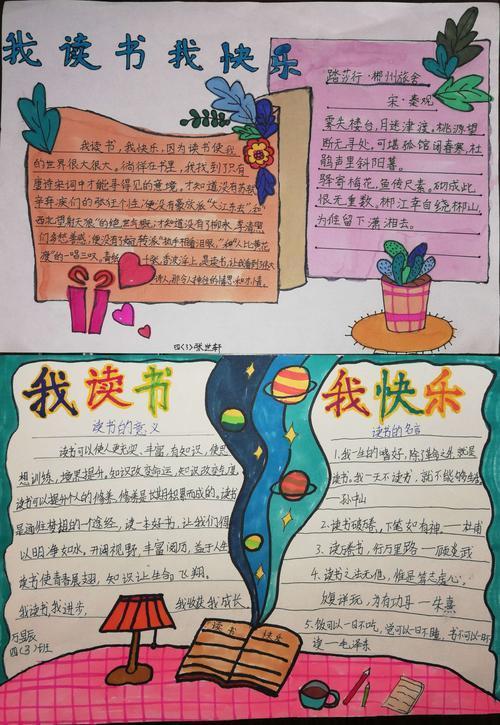 我读书我快乐
我读书,我快乐,因为读书使我
的世界很大很大。徜徉在书里,我找到了只有
唐诗宋词中才能寻得见的意境,才知道没有苏轼
辛弃疾们的张狂个性便没有豪放派"大江东去",和
西北望射天狼"的绝世气概;才知道没有了柳永、李清照
们多愁善感;便没有了婉转派"执手相看泪眼,"和"人比黄花
瘦"的一唱三叹。
是读书,让我看到
诗人,那令人神往的情思和才情。
四(3)张世轩
踏莎行·郴州旅舍
宋·秦观
雾失楼台,月迷津渡,桃源望
断无寻处。可堪孤馆闭春寒,杜
鹃声里斜阳暮。
驿寄梅花,鱼传尺素。砌成此
恨无重数。郴江幸自绕郴山,
为谁留下潇湘去。
我读书
读书的意义
读书可以使人更充实,丰富,有知识,使思
想训练,境界提升。知识改变命运,知识改变
读书可以提升个人的修养,修养是长期积累而成的。读书
是通往梦想的一个途径,读一本好书,让我们得
以明净如水,开阔视野,丰富阅历,益于人生
读书使青春展翅,知识让生命飞翔。
我读书,我进步,我收获,我成长。
四(3)班
我快乐
读书的名言
1.我一生的嗜好,除了革命之外,就是
读书。我一天不读书,就不能够生活
—孙中山
2.读书破万卷,下笔如有神。—杜甫
3.读万卷书,行万里路—顾炎武
4.读书之法无他,惟是笃志虚心,
反复详玩,为有功耳—朱熹
5.饭可以一日不吃,觉可以一日不睡,书不可以一日不
读—毛泽东
读书
快乐